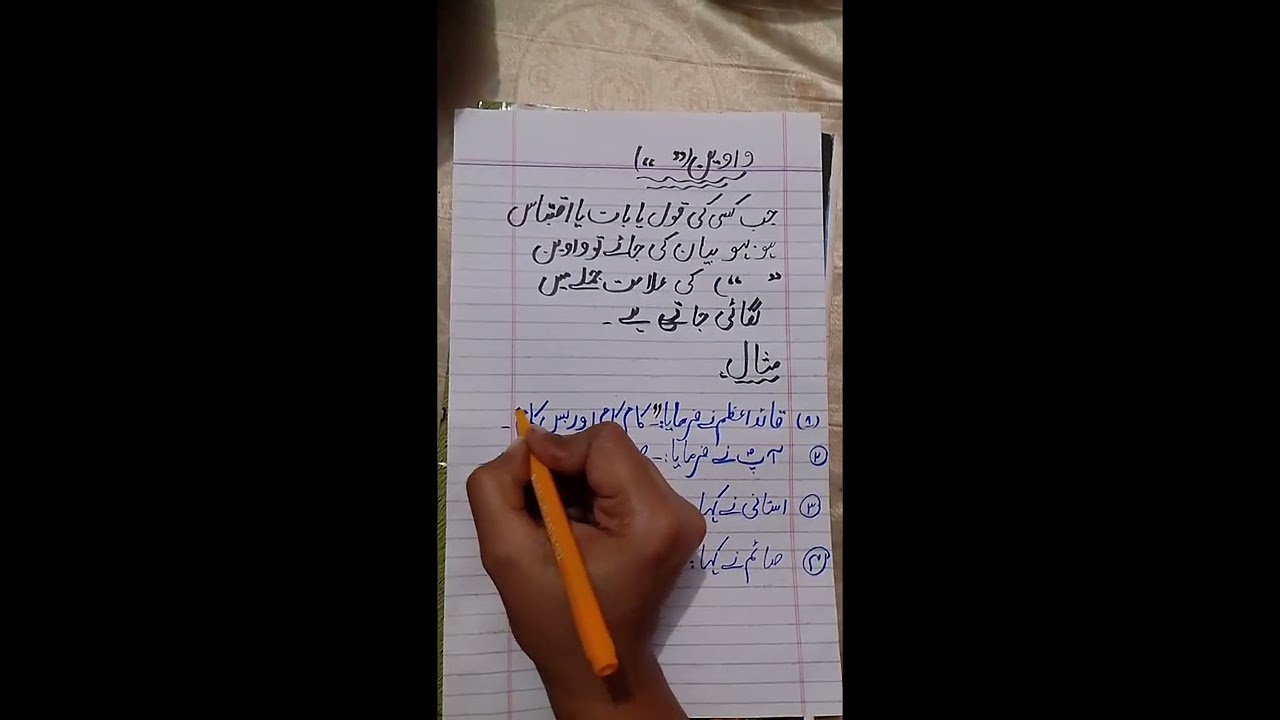 واوین (” “)
جب کسی کی قول یا بات یا اقتباس
ہو بہو بیان کی جائے تو واوین
” “) کی علامت جملے میں
لگائی جاتی ہے ۔
مثال
(۱) قائداعظم نے فرمایا:۔ ”کام کام اور بس کام ۔
۲ آپؐ نے فرمایا:۔
۳ استانی نے کہا
۴ صائم نے کہا: